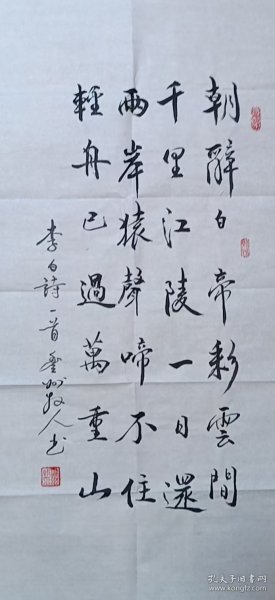 朝辭白帝彩雲間
千里江陵一日還
兩岸猿聲啼不住
輕舟已過萬重山
李白詩一首 牧人书
孔夫子旧书网